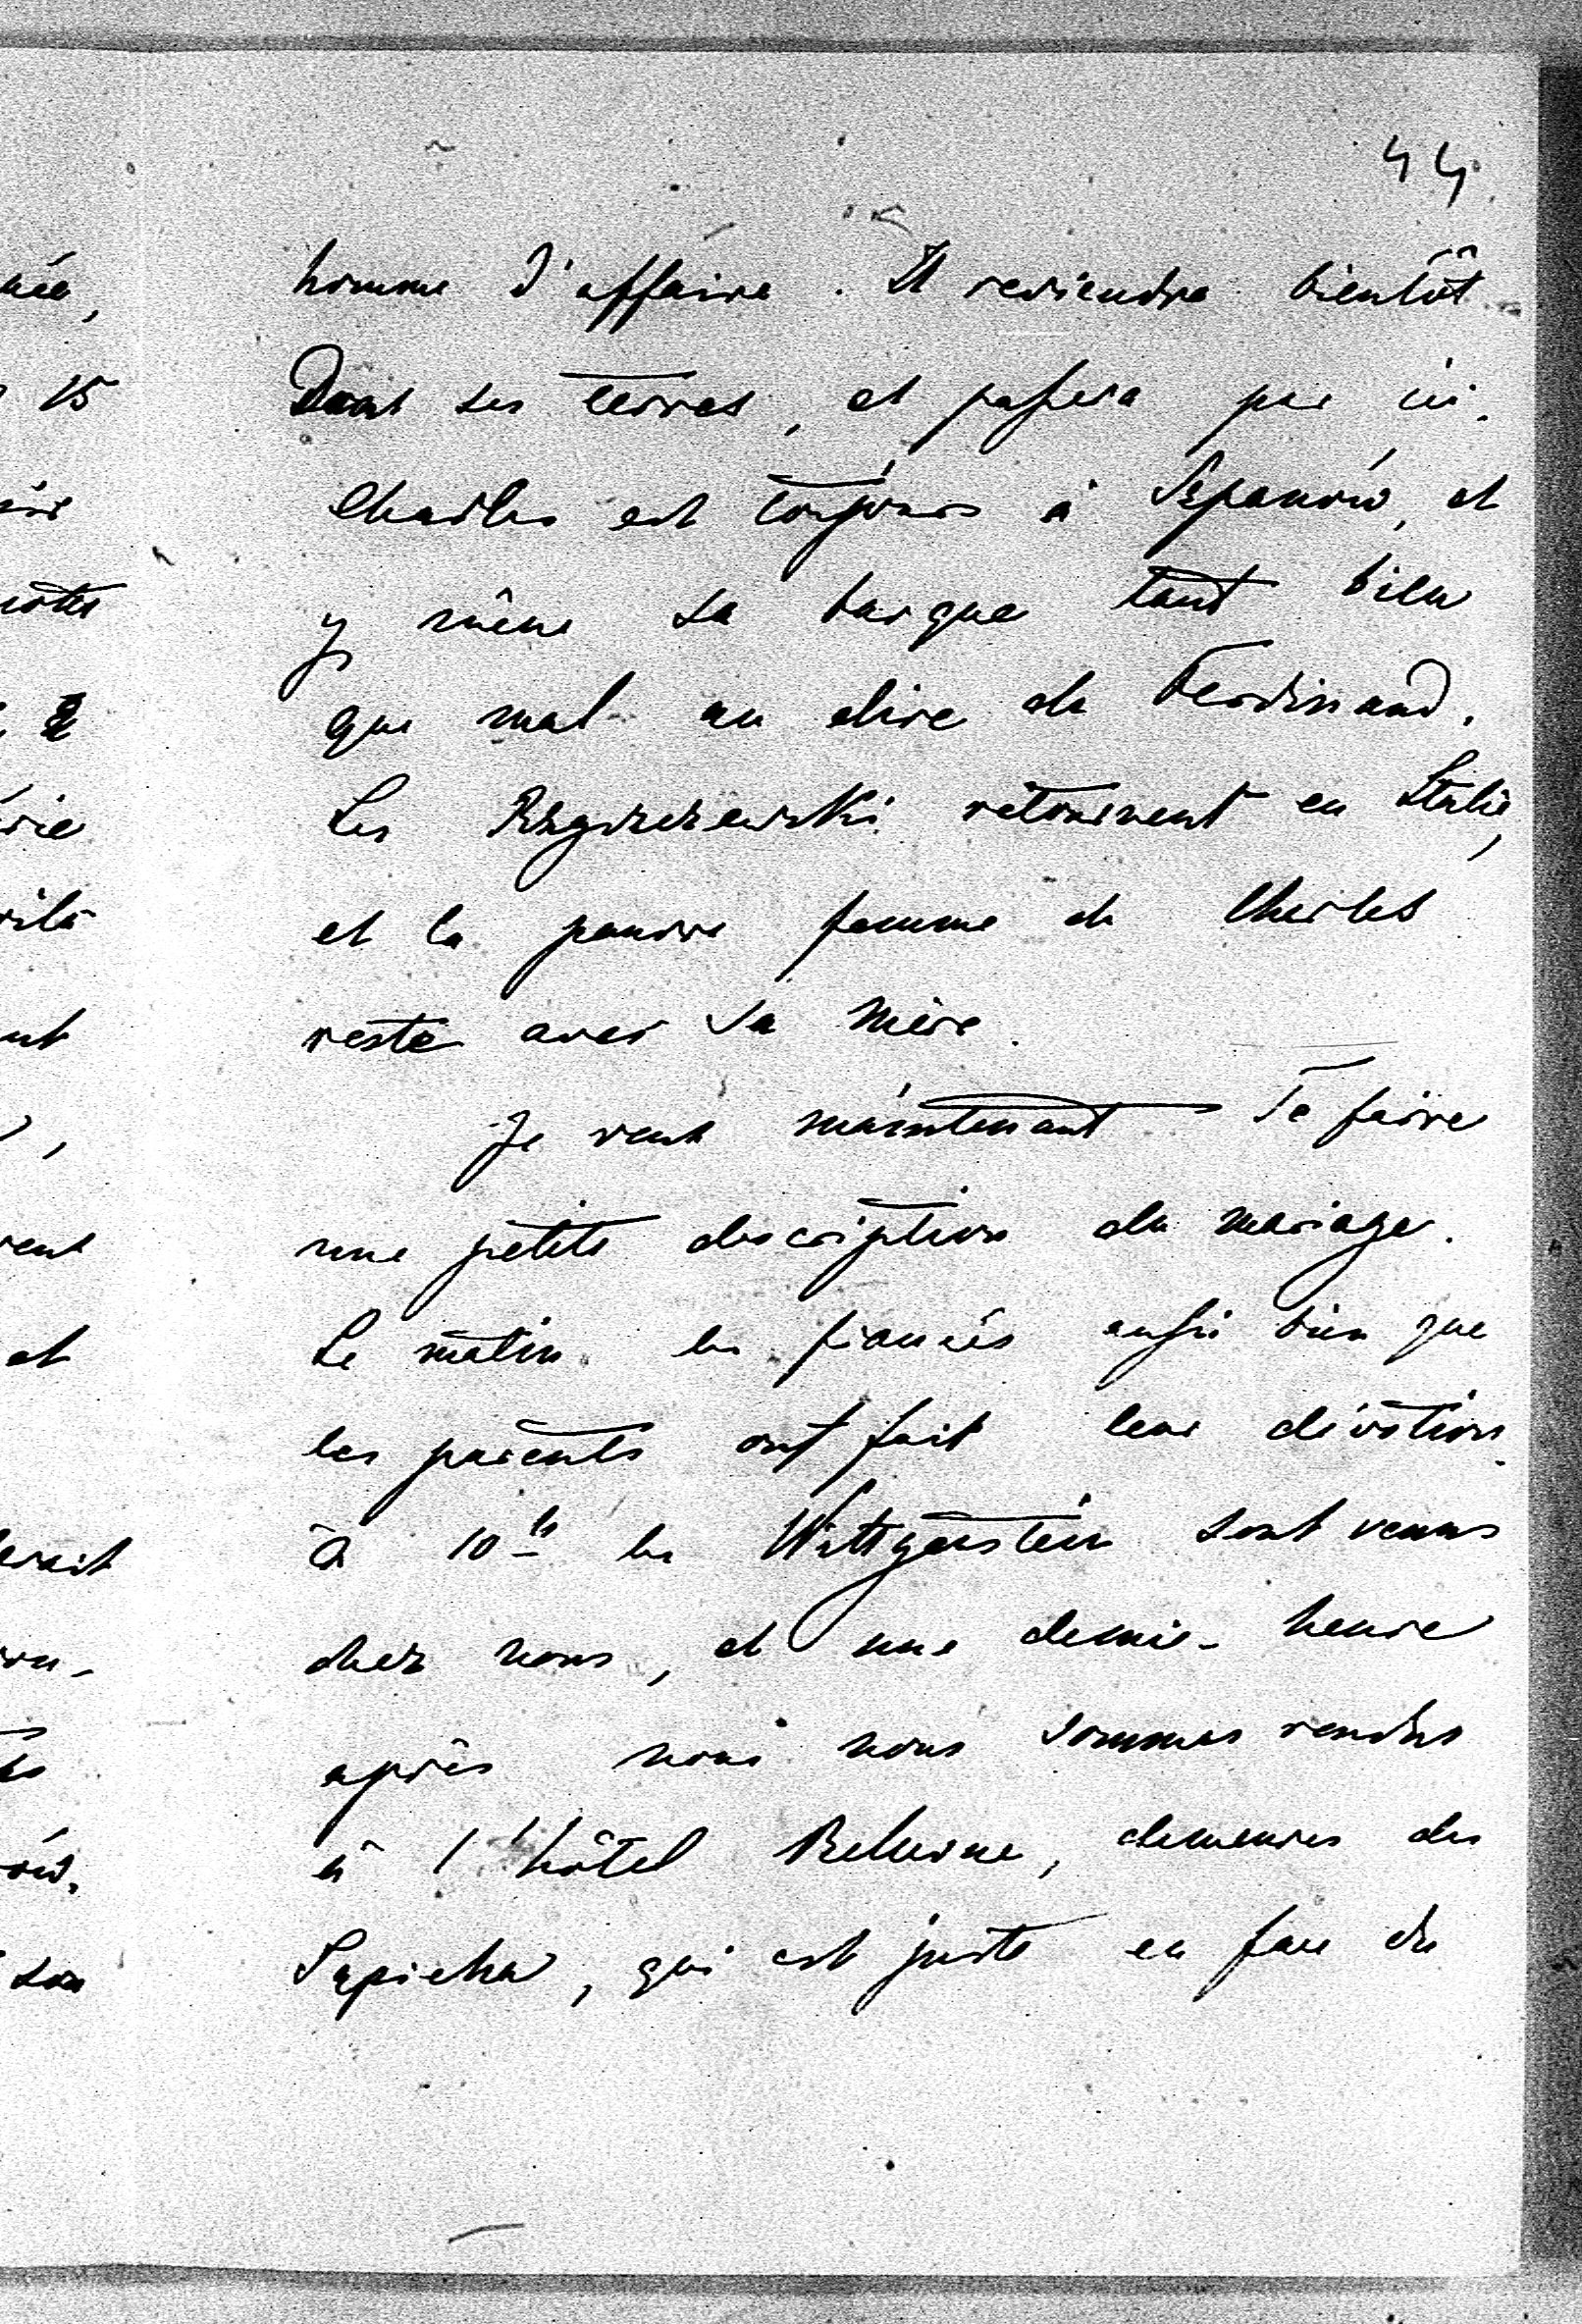 44
homme d'affaire. Il reviendra bientôt
Dans ses terres, et passera par ici.
Charles est toujours à Szpanów, et
y mène sa barque tant bien
que mal au dire de Ferdinand.
Les Rzyszczewski retournent en Italie,
et la pauvre femme de Charles
reste avec sa mère.
Je veux maintenant Te faire
une petite description du mariage.
Le matin les fiancés aussi bien que
les parents ont fait leur dévotion.
à 10 h les Wittgenstein sont venus
chez nous, et une demie-heure
après nous nous sommes rendus
à l'hôtel Bellevue, demeures des
Sapieha, qui est juste en face du